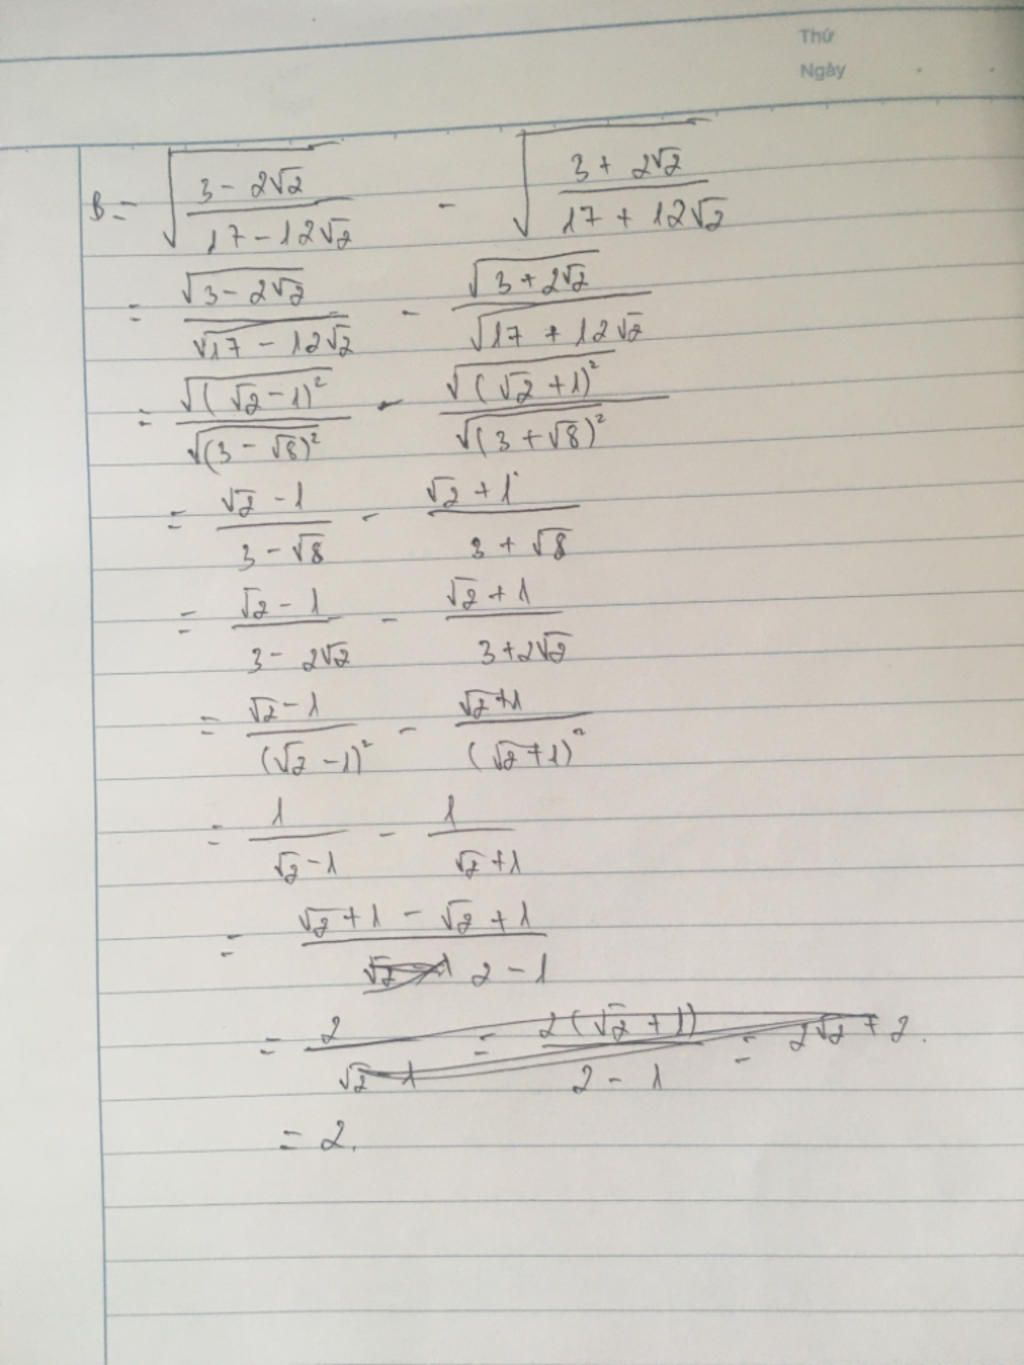 Thứ
Ngày
B = √((3 - 2√2)/(17 - 12√2)) - √((3 + 2√2)/(17 + 12√2))
= √(3 - 2√2)/√(17 - 12√2) - √(3 + 2√2)/√(17 + 12√2)
= √((√2 - 1)²)/√((3 - √8)²) - √((√2 + 1)²)/√((3 + √8)²)
= (√2 - 1)/(3 - √8) - (√2 + 1)/(3 + √8)
= (√2 - 1)/(3 - 2√2) - (√2 + 1)/(3 + 2√2)
= (√2 - 1)/(√2 - 1)² - (√2 + 1)/(√2 + 1)²
= 1/(√2 - 1) - 1/(√2 + 1)
= (√2 + 1 - √2 + 1)/(2 - 1)
= 2/(√2 - 1) = 2(√2 + 1)/(2 - 1) = 2√2 + 2.
= 2.